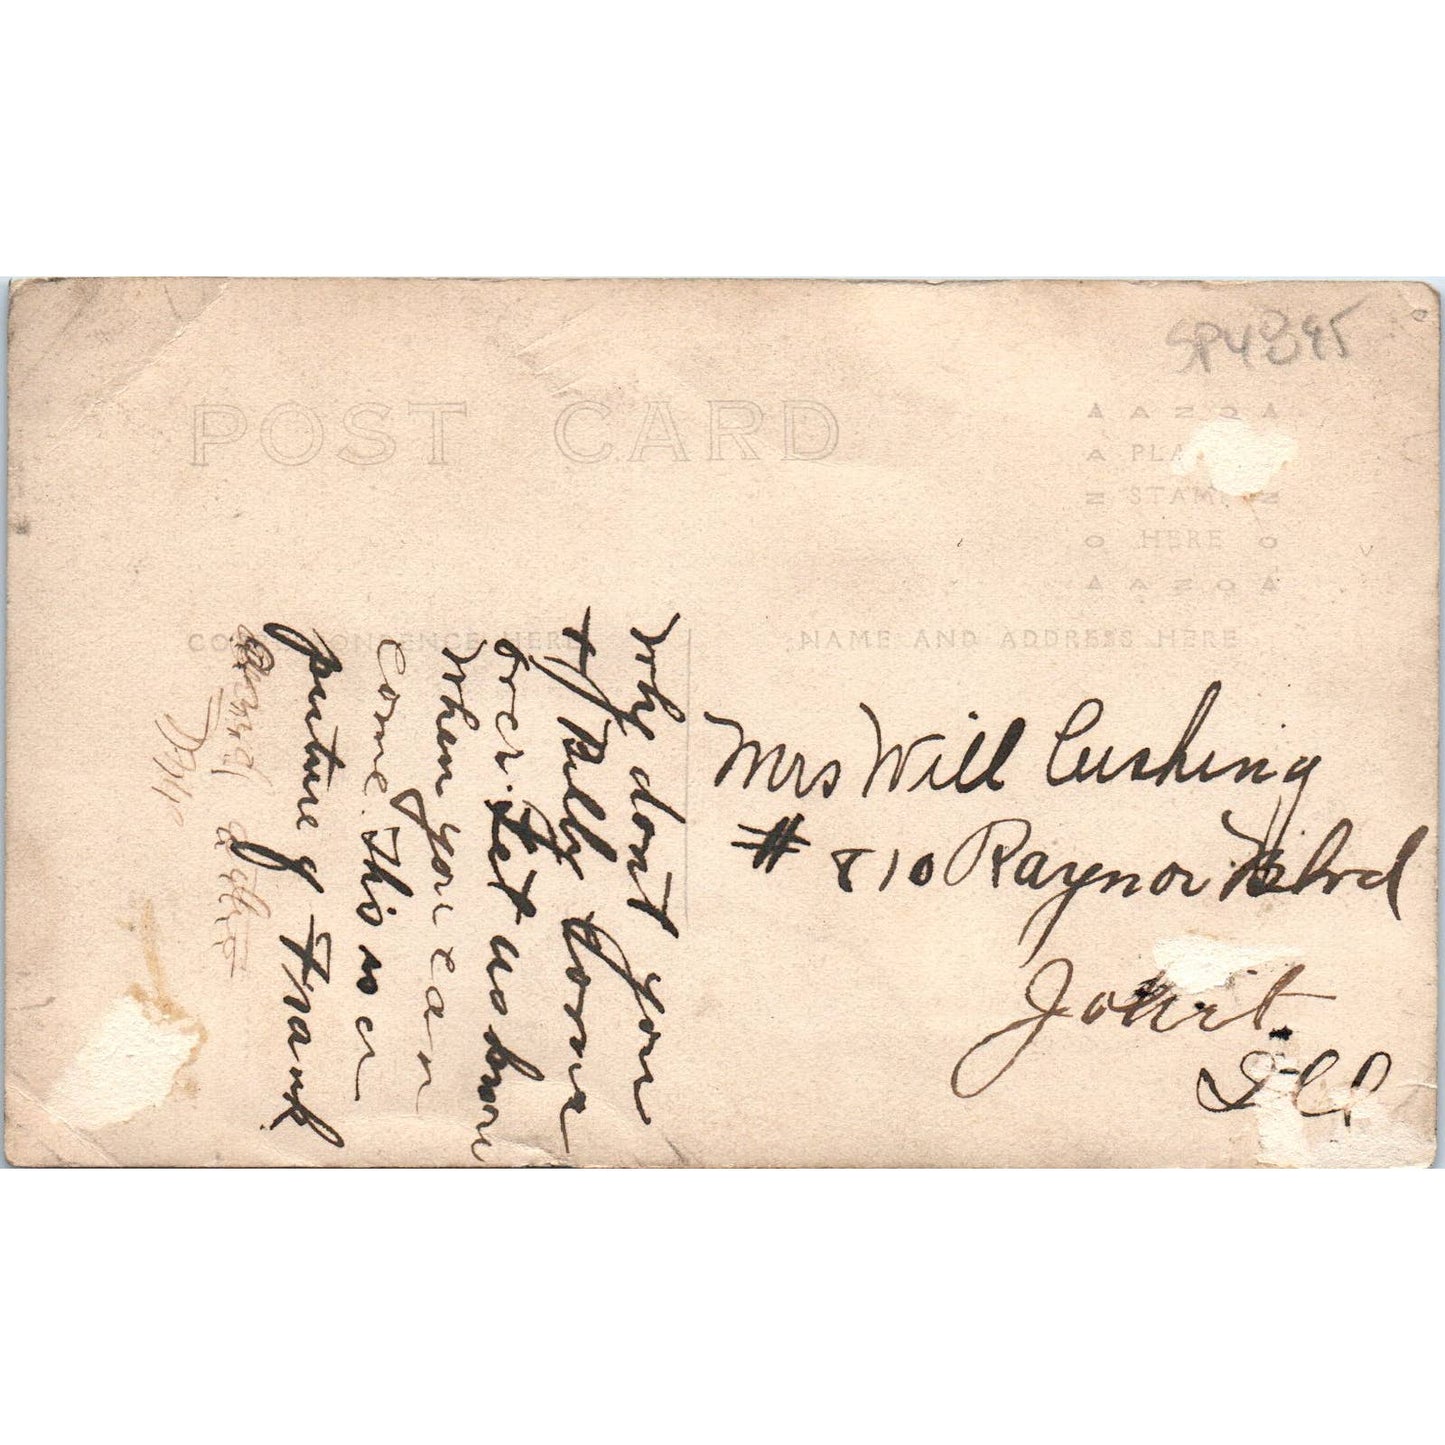 SP4895
POST CARD
A A Z O A
A PLA
Z STAM Z
O HERE O
A A Z O A
CORRESPONDENCE HERE
NAME AND ADDRESS HERE
Why dont you
+ Billy Come
over. Let us know
When you can
Come. This is a
picture of Frank
and
Mrs Will Cushing
# 810 Raynor Blvd
Joliet.
Ill